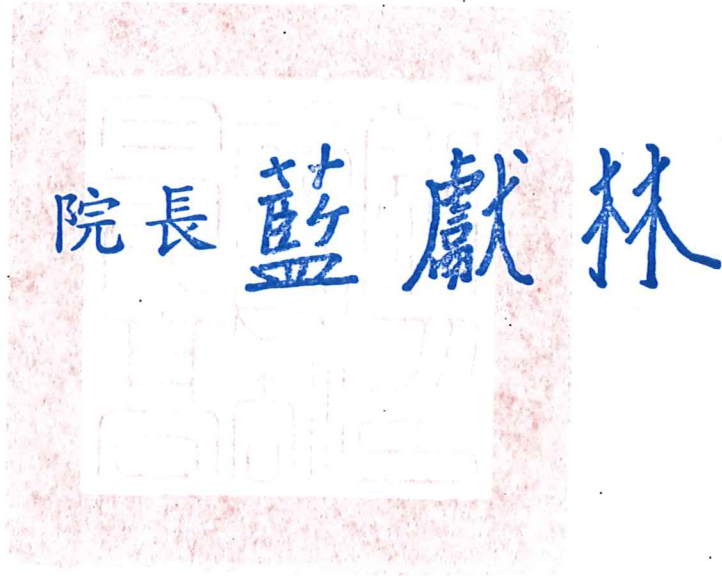 院長藍獻林